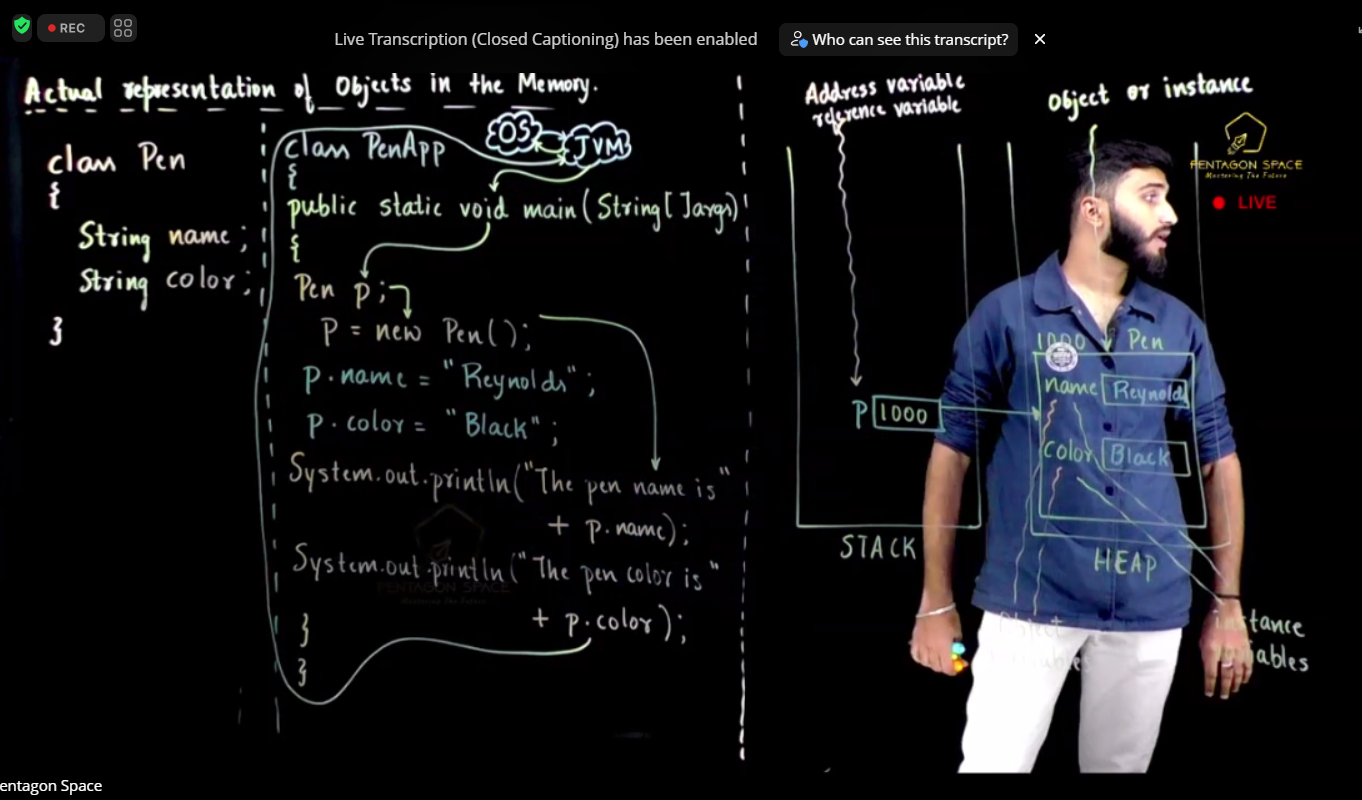 REC
Live Transcription (Closed Captioning) has been enabled
Who can see this transcript?
Actual representation of Objects in the Memory.
class Pen
{
String name;
String color;
}
OS
JVM
class PenApp
{
public static void main(String[]args)
{
Pen p;
P = new Pen();
p.name = "Reynolds";
p.color = "Black";
System.out.println("The pen name is"
+ p.name);
System.out.println("The pen color is"
+ p.color);
}
}
PENTAGON SPACE
Address variable
reference variable
P 1000
STACK
Object or instance
PENTAGON SPACE
Mastering The Future
LIVE
1000 Pen
name Reynolds
color Black
HEAP
Object
instance
entagon Space